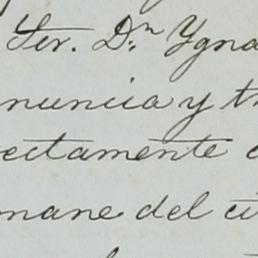 Ser. D.ⁿ Ygna
nuncia y t
ectamente
mane del ci